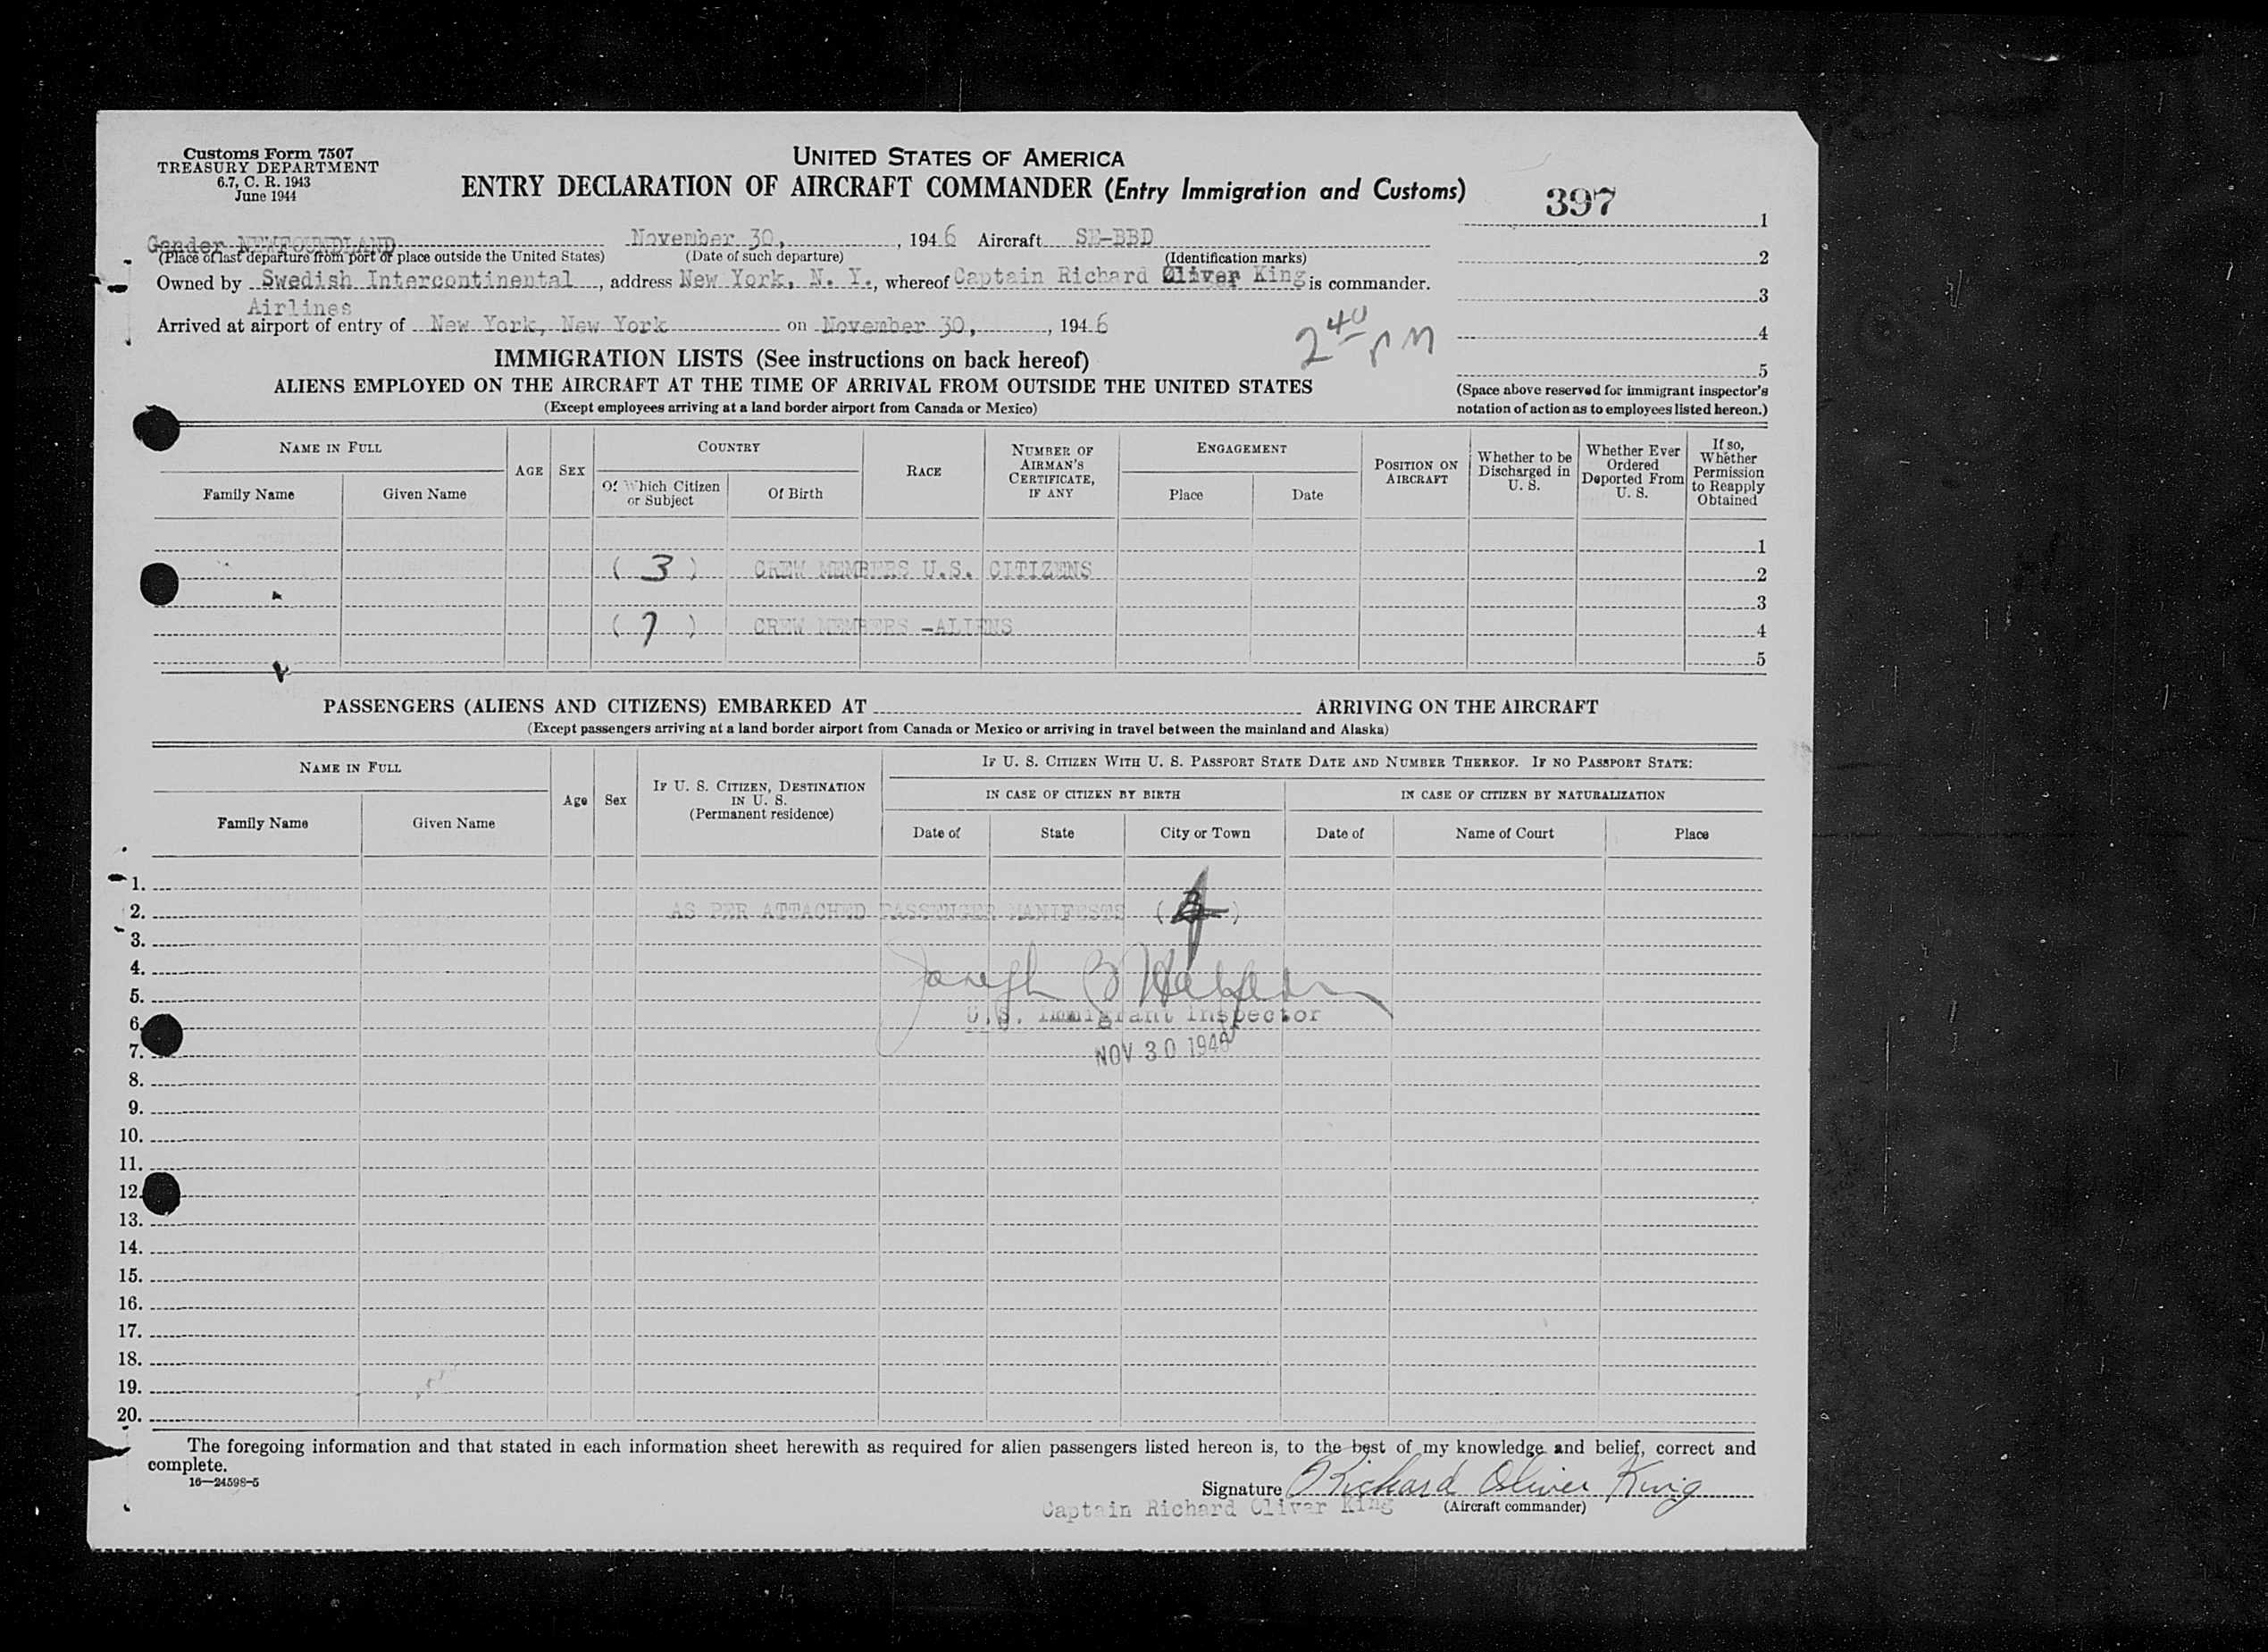 Customs Form 7507
TREASURY DEPARTMENT
6.7, C. R. 1943
June 1944
UNITED STATES OF AMERICA
ENTRY DECLARATION OF AIRCRAFT COMMANDER (Entry Immigration and Customs)
397
Gander NEWFOUNDLAND November 30, , 1946 Aircraft SE-BBD
(Place of last departure from port or place outside the United States) (Date of such departure) (Identification marks)
Owned by Swedish Intercontinental, address New York, N. Y., whereof Captain Richard Oliver King is commander.
Airlines
Arrived at airport of entry of New York, New York on November 30, , 1946
2 40 PM
1
2
3
4
5
(Space above reserved for immigrant inspector's
notation of action as to employees listed hereon.)
IMMIGRATION LISTS (See instructions on back hereof)
ALIENS EMPLOYED ON THE AIRCRAFT AT THE TIME OF ARRIVAL FROM OUTSIDE THE UNITED STATES
(Except employees arriving at a land border airport from Canada or Mexico)
NAME IN FULL
Family Name
Given Name
AGE
SEX
COUNTRY
Of Which Citizen or Subject
Of Birth
RACE
NUMBER OF AIRMAN'S CERTIFICATE, IF ANY
ENGAGEMENT
Place
Date
POSITION ON AIRCRAFT
Whether to be Discharged in U. S.
Whether Ever Ordered Deported From U. S.
If so, Whether Permission to Reapply Obtained
1
( 3 ) CREW MEMBERS U.S. CITIZENS 2
3
( 7 ) CREW MEMBERS -ALIENS 4
5
PASSENGERS (ALIENS AND CITIZENS) EMBARKED AT ARRIVING ON THE AIRCRAFT
(Except passengers arriving at a land border airport from Canada or Mexico or arriving in travel between the mainland and Alaska)
NAME IN FULL
Family Name
Given Name
Age
Sex
IF U. S. CITIZEN, DESTINATION IN U. S.
(Permanent residence)
IF U. S. CITIZEN WITH U. S. PASSPORT STATE DATE AND NUMBER THEREOF. IF NO PASSPORT STATE:
IN CASE OF CITIZEN BY BIRTH
IN CASE OF CITIZEN BY NATURALIZATION
Date of
State
City or Town
Date of
Name of Court
Place
1.
2. AS PER ATTACHED PASSENGER MANIFESTS ( )
3.
4.
5. Joseph B
6. U.S. Immigrant Inspector
7. NOV 30 1946
8.
9.
10.
11.
12.
13.
14.
15.
16.
17.
18.
19.
20.
The foregoing information and that stated in each information sheet herewith as required for alien passengers listed hereon is, to the best of my knowledge and belief, correct and
complete.
16—24598-5
Signature Richard Oliver King
Captain Richard Oliver King (Aircraft commander)